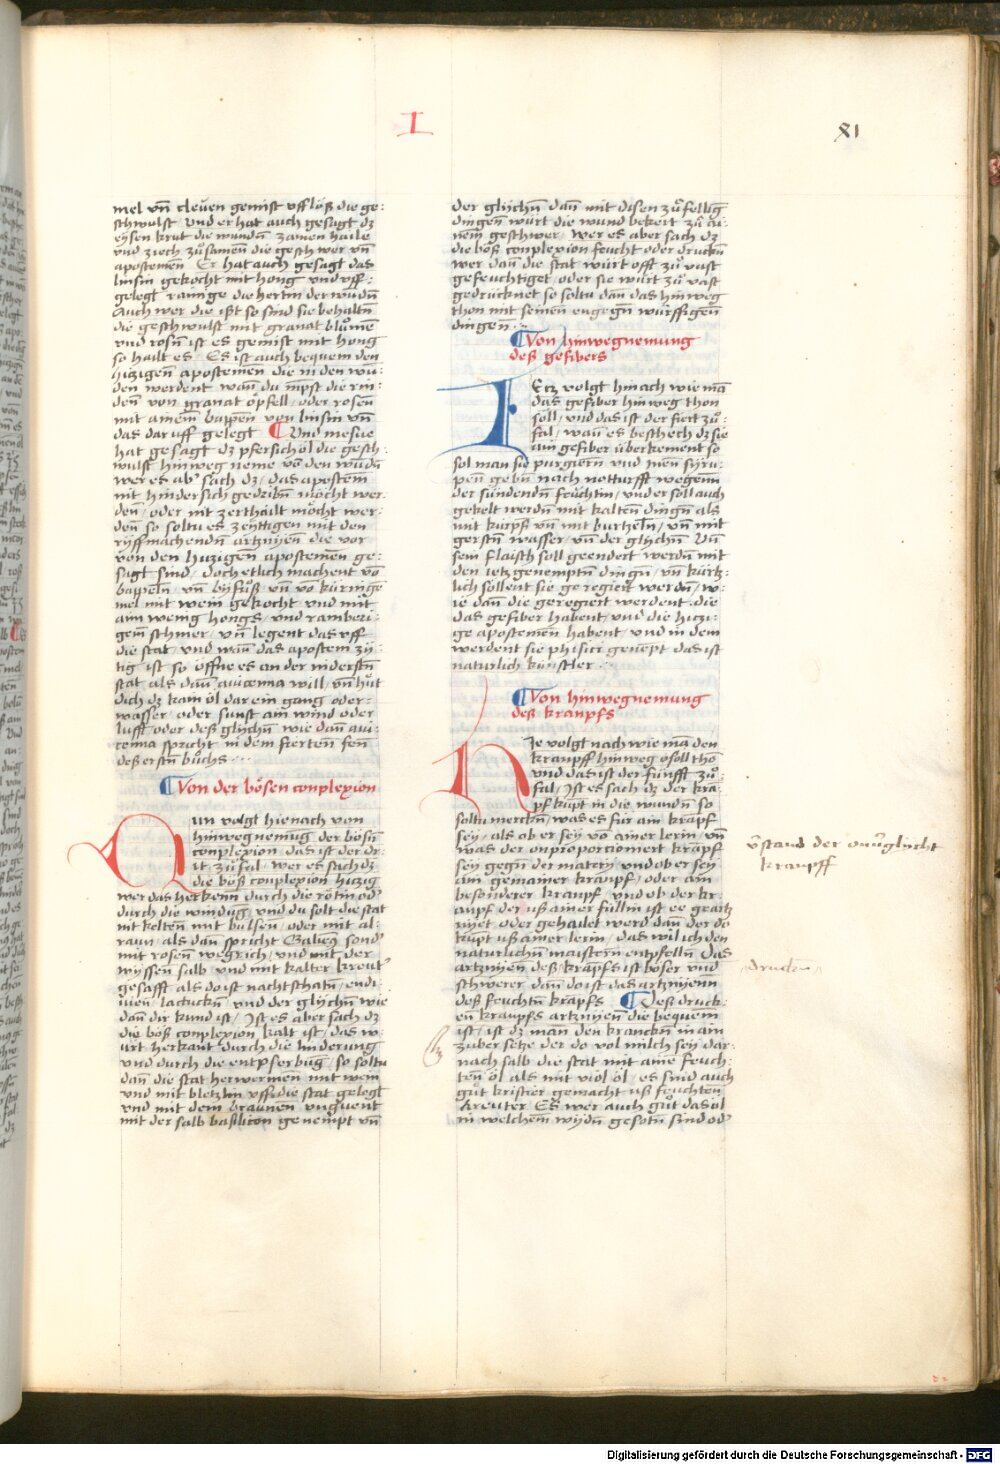 I
XI
mel vn̄ cleuen gemist vfflöß die ge:
schwulst / Und er hat auch gesagt dz
eysen krut die wundn̄ zamen haile
vnd ziech zůsamen die geschwer vn̄
apostemen Er hat auch gesagt das
linsin gekocht mit hong vnd vff:
gelegt rainige die hertin der wūdn̄
Auch wer die ißt so sind sie behaltn̄
die geschwulst mit granat blůmen
vnd rosn̄ ist es gemist mit hong
so hailt es Es ist auch bequem den
hitzigen apostemen die in den wū:
den werdent wan̄ du nipst die rin:
den von granat öpfell / oder rosen
mit ainem bappen von linsin vn̄
das daruff gelegt ¶ Und mesue
hat gesagt dz pfersich öl die gesch:
wulst hinweg neme vō den wūdn̄
wer es ab' sach dz / das apostem
nit hindersich gedribn̄ möcht wer
den / oder nit zerthailt möcht wer:
den so soltu es zeyttigen mit den
ryffmachendn̄ artznyen die vor
von den hitzigen apostemen ge:
sagt sind / doch etlich machent vō
bappeln vn̄ byfůß vn̄ vō kūringe
mel mit wein gekocht vnd mit
ain wenig hongs / vnd ramberi:
gem schmer / vn̄ legent das vff
die stat / vnd wan̄ das apostem zy:
tig ist so öffne es an der niderstn̄
stat als dan̄ auicenna will / vn̄ hüt
dich dz kain öl dar ein gang oder
wasser / oder sunst ain wind oder
lufft oder deß glychn̄ wie dan̄ aui:
cenna spricht in dem fierten fen̄
deß erstn̄ bůchs
¶ Von der bösen complexion
Nun volgt hie nach von
hinwegnemug der bösn̄
complexion / das ist der dr:
it zůfal / wer es sach dz
die böß complexion hitzig
wer das herkenn durch die rötin od'
durch die windūg / vnd du solt die stat
mit keltenn mit bulsen / oder mit al:
raun / als dan̄ spricht Galieng sond'
mit rosen wegrich / vnd mit der
wyssen salb vnd mit kalter kreut'
gesafft als do ist nachtschatn̄ / endi:
uien / lactuckn̄ vnd der glychn̄ wie
dan̄ dir kund ist / Jst es aber sach dz
die böß complexion kalt ist / das w:
irt herkant durch die linderung
vnd durch die entpferbūg / so soltu
dan̄ die stat herwermen mit wein
vnd mit bletzlin vff die stat gelegt
vnd mit dem braunen vnguent
mit der salb basilicon genempt vn̄
der glychn̄ dan̄ mit disen zůfellig
dingen̄ würt die wund bekert zů ai:
nem geschwer / wer es aber sach dz
die böß complexion feucht oder druckn̄
wer dan̄ die stat würt offt zů vast
gefeuchtiget / oder sie würt zů vast
gedrücknet so soltu dan̄ das hinweg
thon mit seinen engegn̄ würffigen
dingen
¶ Von hinwegnemung
deß gefibers
Jetz volgt hinach wie mā
das gefiber hinweg thon
soll / vnd das ist der fiert zů:
fal / wan̄ es beschech dz sie
ain gefiber überkement so
sol man sie purgiern̄ vnd inen syru:
pen gebn̄ nach notturfft wegenn
der sündendn̄ feuchtin / vnder soll auch
gekelt werdn̄ mit kalten dingn̄ als
mit kürpß vn̄ mit burtzeln / vn̄ mit
gerstn̄ wasser / vn̄ der glychn̄ Vn̄
sein flaisch soll geendert werdn̄ mit
den ietz genemptn̄ dingn̄ / vn̄ kürtz:
lich söllent sie geregiert werdn̄ / w:
ie dan̄ die geregiert werdent die
das gefiber habent / vnd die hitzi:
ge apostemen habent vnd in dem
werdent sie phisici genēpt das ist
naturlich künstler
¶ Von hinwegnemung
deß krampfs
Hie volgt nach wie mā den
krampff hinweg ösoll thō
vnd das ist der fünfft zů:
fal / Jst es sach dz der kra:
pf kūpt in die wundn̄ so
soltu merckn̄ / was es für ain krāpf
sey / als ob er sey vō ainer lerin / vn̄
was der onproporcioniert krāpf
sey gegn̄ der matery / vnd ob er sey
ain gemainer krampf / oder ain
besonderer krampf / vnd ob der kr:
ampf der uß ainer füllin ist ee graitz
nyet oder gehailet werd dan̄ der do
kūpt uß ainer lerin / das wil ich den
naturlichn̄ maistern entpfelln̄ Das
artznyen deß krāpfs ist böser vnd
schwerer dan̄ do ist das artznyenn
deß feuchtn̄ krāpfs ¶ Deß druck:
en̄ krampfs artznyen̄ die bequem
ist / ist dz man den kranckn̄ in ain
zuber setze der do vol milch sey dar:
nach salb die stat mit aine feuch:
ten öl als mit viol öl / es sind auch
gůt kristier gemacht uß feuchten
kreuter Es wer auch gůt das öl
in welchem wydn̄ gesotn̄ sind od'
v'stand der onv'glycht
krampff